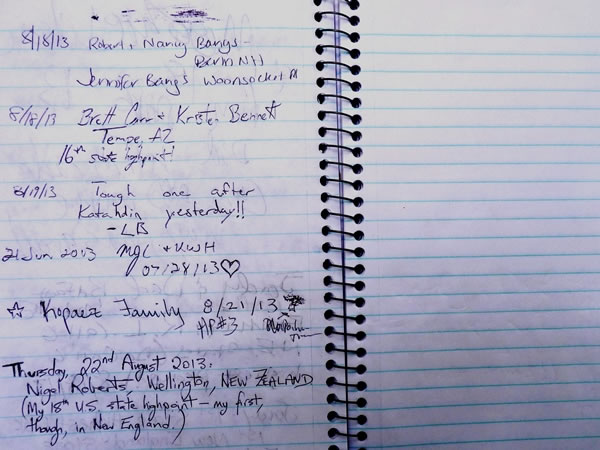 8/18/13 Robert & Nancy Bangs -
Berlin NH
Jennifer Bangs Woonsocket RI
8/18/13 Brett Carr & Kristen Bennett
Tempe, AZ
16th state highpoint!
8/19/13 Tough one after
Katahdin yesterday!!
- LB
21 Jun. 2013 MJL & KWH
07/28/13 ♡
☆ Kopaez Family 8/21/13
HP#3
Thursday, 22nd August 2013:
Nigel Roberts, Wellington, NEW ZEALAND
(My 18th U.S. state highpoint – my first,
though, in New England.)